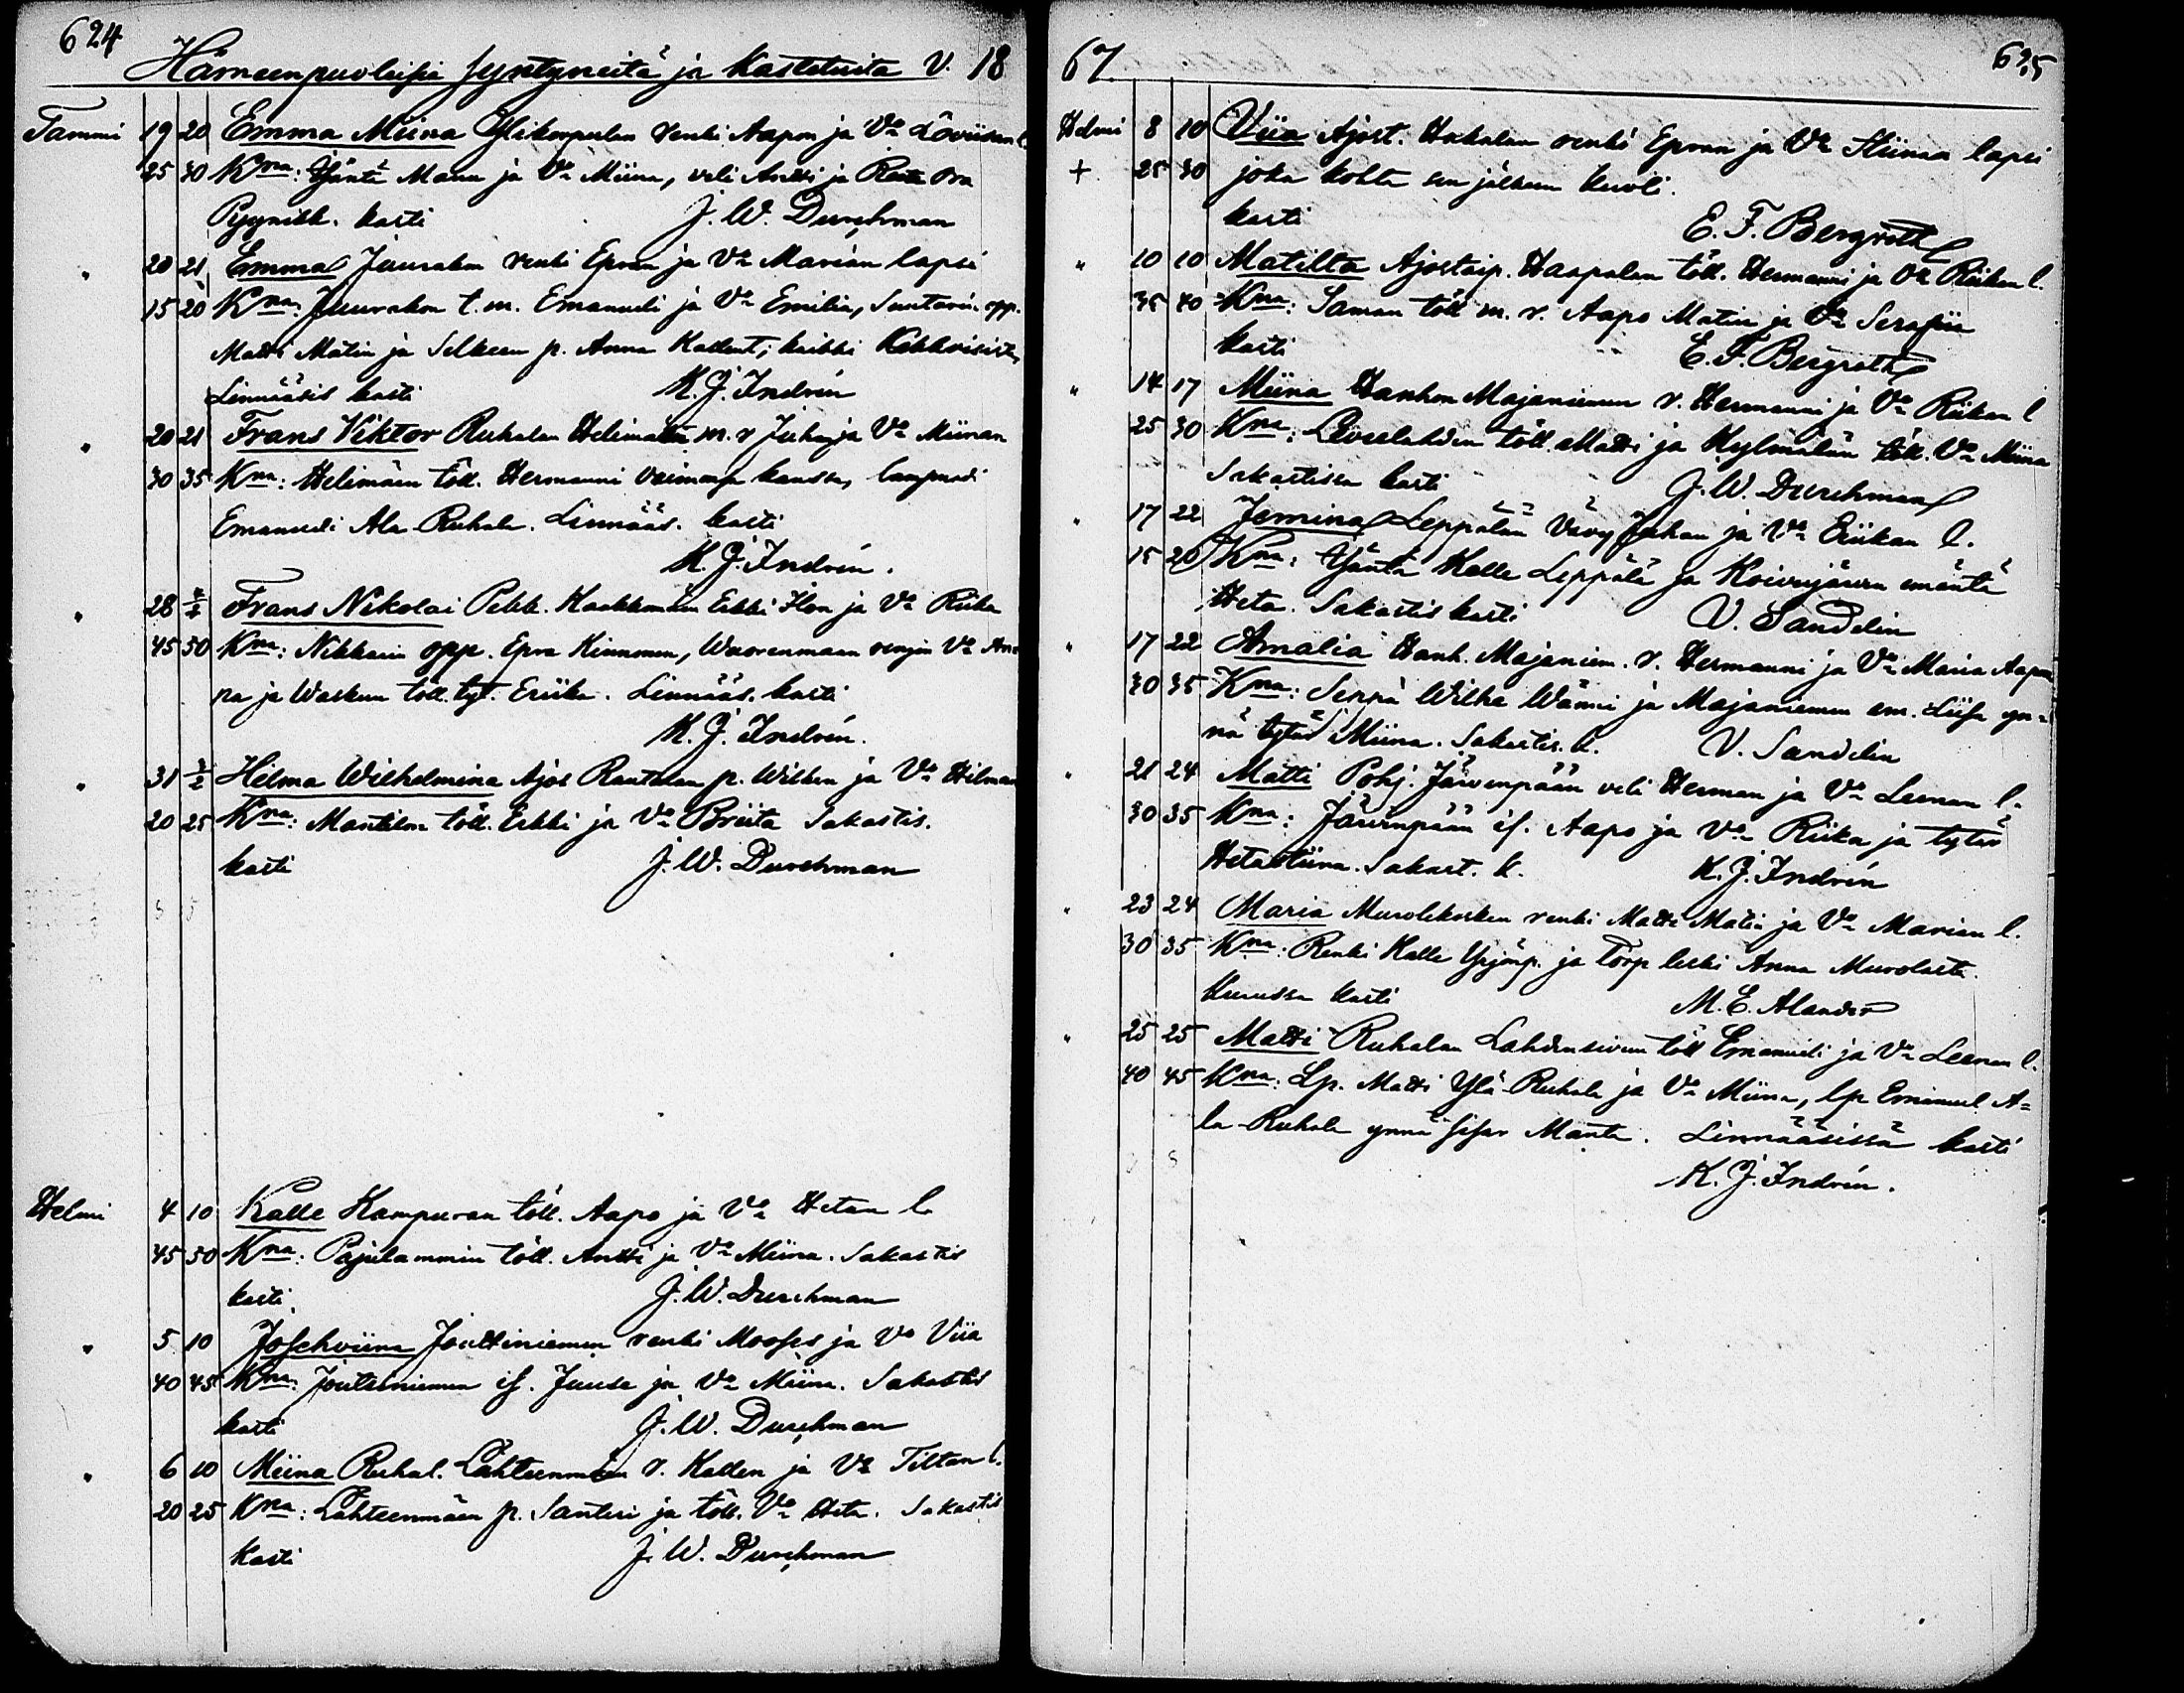 624
Hämeenpuolaisia syntyneitä ja kastetuita V. 18
Tammi 19 20 Emma Miina Ylikompulan renki Aapon ja Vo Loviisan l.
25 30 Kna: Isäntä Manu ja Vo Miina, veli Antti ja Ora
kasti J. W. Durchman
" 20 21 Emma Juurakon renki Epran ja Vo Marian lapsi
15 20 Kna: Juurakon t. m. Emanueli ja Vo Emilia, opp.
Matti Matin ja p. Anna
Linnääsis kasti K. J. Indrén
" 20 21 Frans Viktor Ruhalan Helimäen m. r Juhan ja Vo Miinan
30 35 Kna: Helimäen töll. Hermanni vaimonsa kanssa, lampuodi
Emanueli Ala-Ruhala. Linnääs. kasti
K. J. Indrén.
" 28 Frans Nikolai Pekk. Kaakkomäen Erkki Ilon ja Vo Riika
45 50 Kna: Nikkarin opp. Epra Kinnunen, Wuorenmaan rengin Vo An-
na ja Waskuun töll. tyt. Eriika. Linnääs. kasti
K. J. Indrén.
" 31 Helma Wilhelmina Ajos Rantalan p. Wilken ja Vo Hilman
20 25 Kna: Mantilan töll. Erkki ja Vo Briita Sakastis.
kasti J. W. Durchman
Helmi 4 10 Kalle Kampuran töll. Aapo ja Vo Hetan l.
45 50 Kna: Pajulammin töll. Antti ja Vo Miina. Sakastis
kasti J. W. Durchman
" 5 10 Josehviina Jouttiniemen renki Mooses ja Vo Viia
40 45 Kna: Joutsiniemen is. Juusa ja Vo Miina. Sakastis
kasti J. W. Durchman
" 6 10 Miina Ruhal. Lähteenmäen r. Kallen ja Vo Tiltan l.
20 25 Kna: Lähteenmäen p. Santeri ja töll. Vo Heta. Sakastis
kasti J. W. Durchman
67 625
Helmi 8 10 Viia Ajost. Hakalan renki Epran ja Vo Stiinan lapsi
+ 25 30 joka kohta sen jälkeen kuoli.
kasti E. F. Bergroth
" 10 10 Matilta Ajostaip. Haapalan töll. Hermanni ja Vo Riikan l.
35 40 Kna: Saman töll m. r. Aapo Matin ja Vo Serafiia
kasti E. F. Bergroth
" 14 17 Miina Hanhon Majaniemen r. Hermanni ja Vo Riikan l
25 30 Kna: Levulahden töll. Matti ja Kylmälän töll. Vo Miina
Sakastissa kasti J. W. Durchman
" 17 22 Jemina Leppälän Vävy Juhan ja Vo Eriikan l.
15 20 Kna: Isäntä Kalle Leppälä ja Koivujärven emäntä
Heta. Sakastis kasti V. Sandelin
" 17 22 Amalia Hanh. Majaniem. r. Hermanni ja Vo Maria Aapon
30 35 Kna: Seppä Wilhe Wänni ja Majaniemen em. Liisa yn-
nä tytär Miina. Sakastis. k. V. Sandelin
" 21 24 Matti Pohj. Järvenpään veli Herman ja Vo Leenan l.
30 35 Kna: Järvenpään is. Aapo ja Vo Riika ja tytär
Hetastiina. Sakast. k. K. J. Indrén
" 23 24 Maria Murolekosken renki Matti Matin ja Vo Marian l.
30 35 Kna. Renki Kalle Yrjönp. ja Torp leski Anna Murolasta.
Kurussa kasti M. E. Alander
" 25 25 Matti Ruhalan Lahdensivun töll Emanueli ja Vo Leenan l.
40 45 Kna: Lp. Matti Ylä-Ruhala ja Vo Miina, lp Emanuel A-
la-Ruhala ynnä sisar Manta. Linnääsissä kasti
K. J. Indrén.